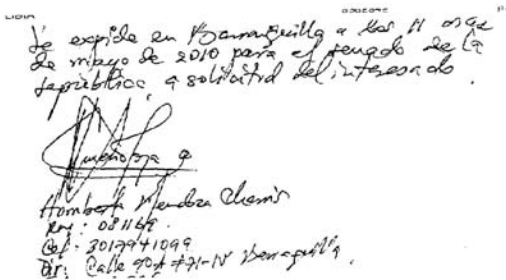 Se expide en Barranquilla a los 11 días
de mayo de 2010 para el senado de la
república, a solicitud del interesado.
Mendoza
Mendoza Chams
Reg: 081169
Cel: 3017941099
Dir: Calle Barranquilla